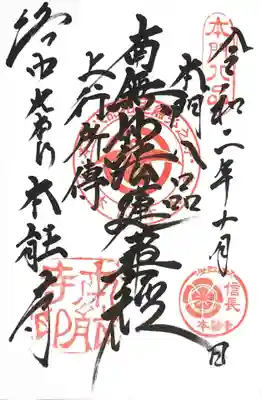 令和二年十月 日
本門八品
南無妙法蓮華経
上行所傳
本能寺
本門八品
信長
本能寺